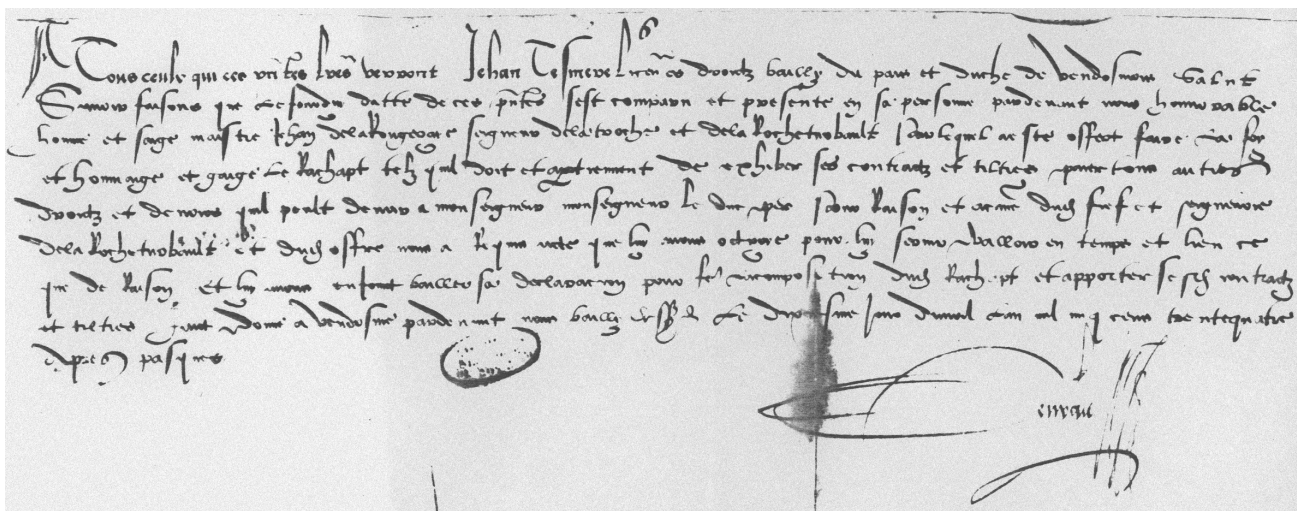 A Tous ceulx qui ces pñtes lrẽs verront Jehan licẽn es droictz bailly du pais et duche de vendosmois salut
Savoir faisons que le jourduy datte de ces pñtes sest comparu et presente en sa personne pardevant nous honnorable
homme et saige maistre Jehan delaRougeore seigneur delatroche et delaRochetuobault lequel a este offert faire les foy
et hommage et gaige le Rachapt telz quil doit et de exhiber ses contractz et tiltres paier tous autres
droictz et devoirs quil peult devoir a monseigneur monseigneur le duc par Raison et dud fief et seigneurie
delaRochetuobault Et dud offre nous a Requis acte que luy avons octroye pour luy servir valloir en temps et lieu ce
que de Raison Et luy avons enjoinct bailler sa declaracion pour fẽ la composition dud Rachapt et apporter sesd contractz
et tiltres donne a vendosme pardevant nous bailly le jour davril lan mil cens trentequatre
apres pasques